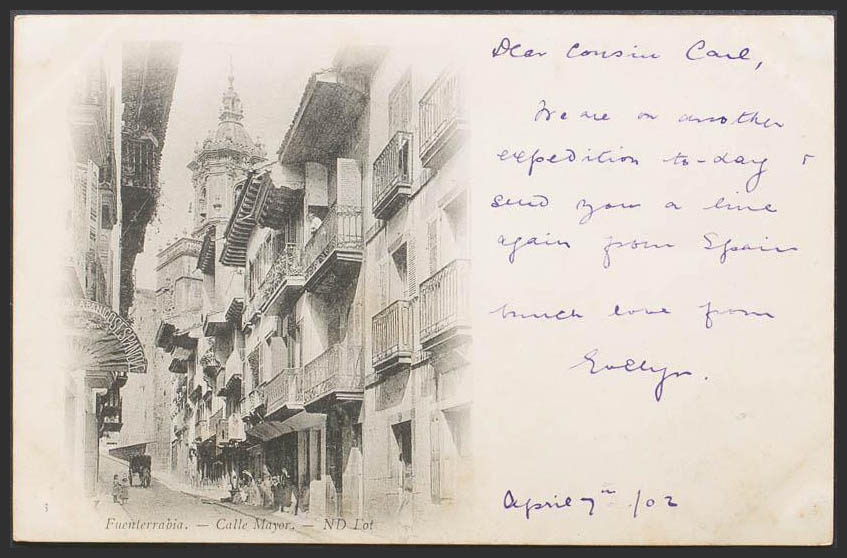 Dear Cousin Carl,
We are on another
expedition to-day &
send you a line
again from Spain
much love from
Evelyn.
April 7th /02
ABANICOS ESPAÑA
3
Fuenterrabia. — Calle Mayor. — ND Lot